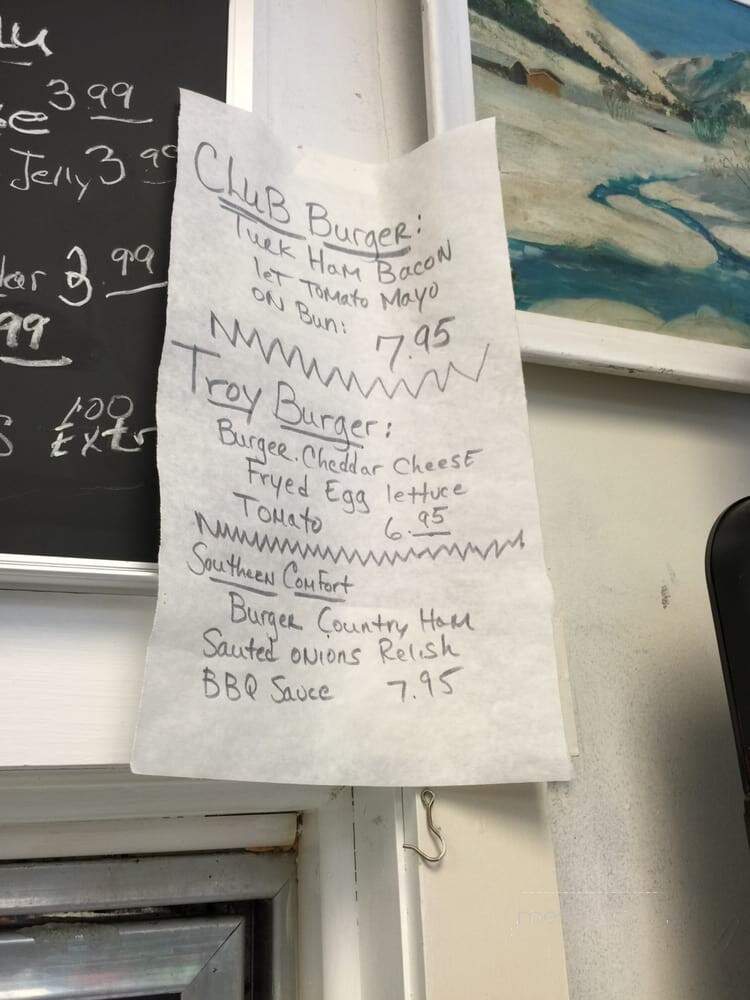 3 99
Jelly 3 99
3.99
99
1.00
Extr
CluB Burger:
Turk Ham Bacon
let Tomato Mayo
on Bun:
7.95
Troy Burger:
Burger. Cheddar Cheese
Fryed Egg lettuce
Tomato 6.95
Southern Comfort
Burger Country Ham
Sauted onions Relish
BBQ Sauce 7.95